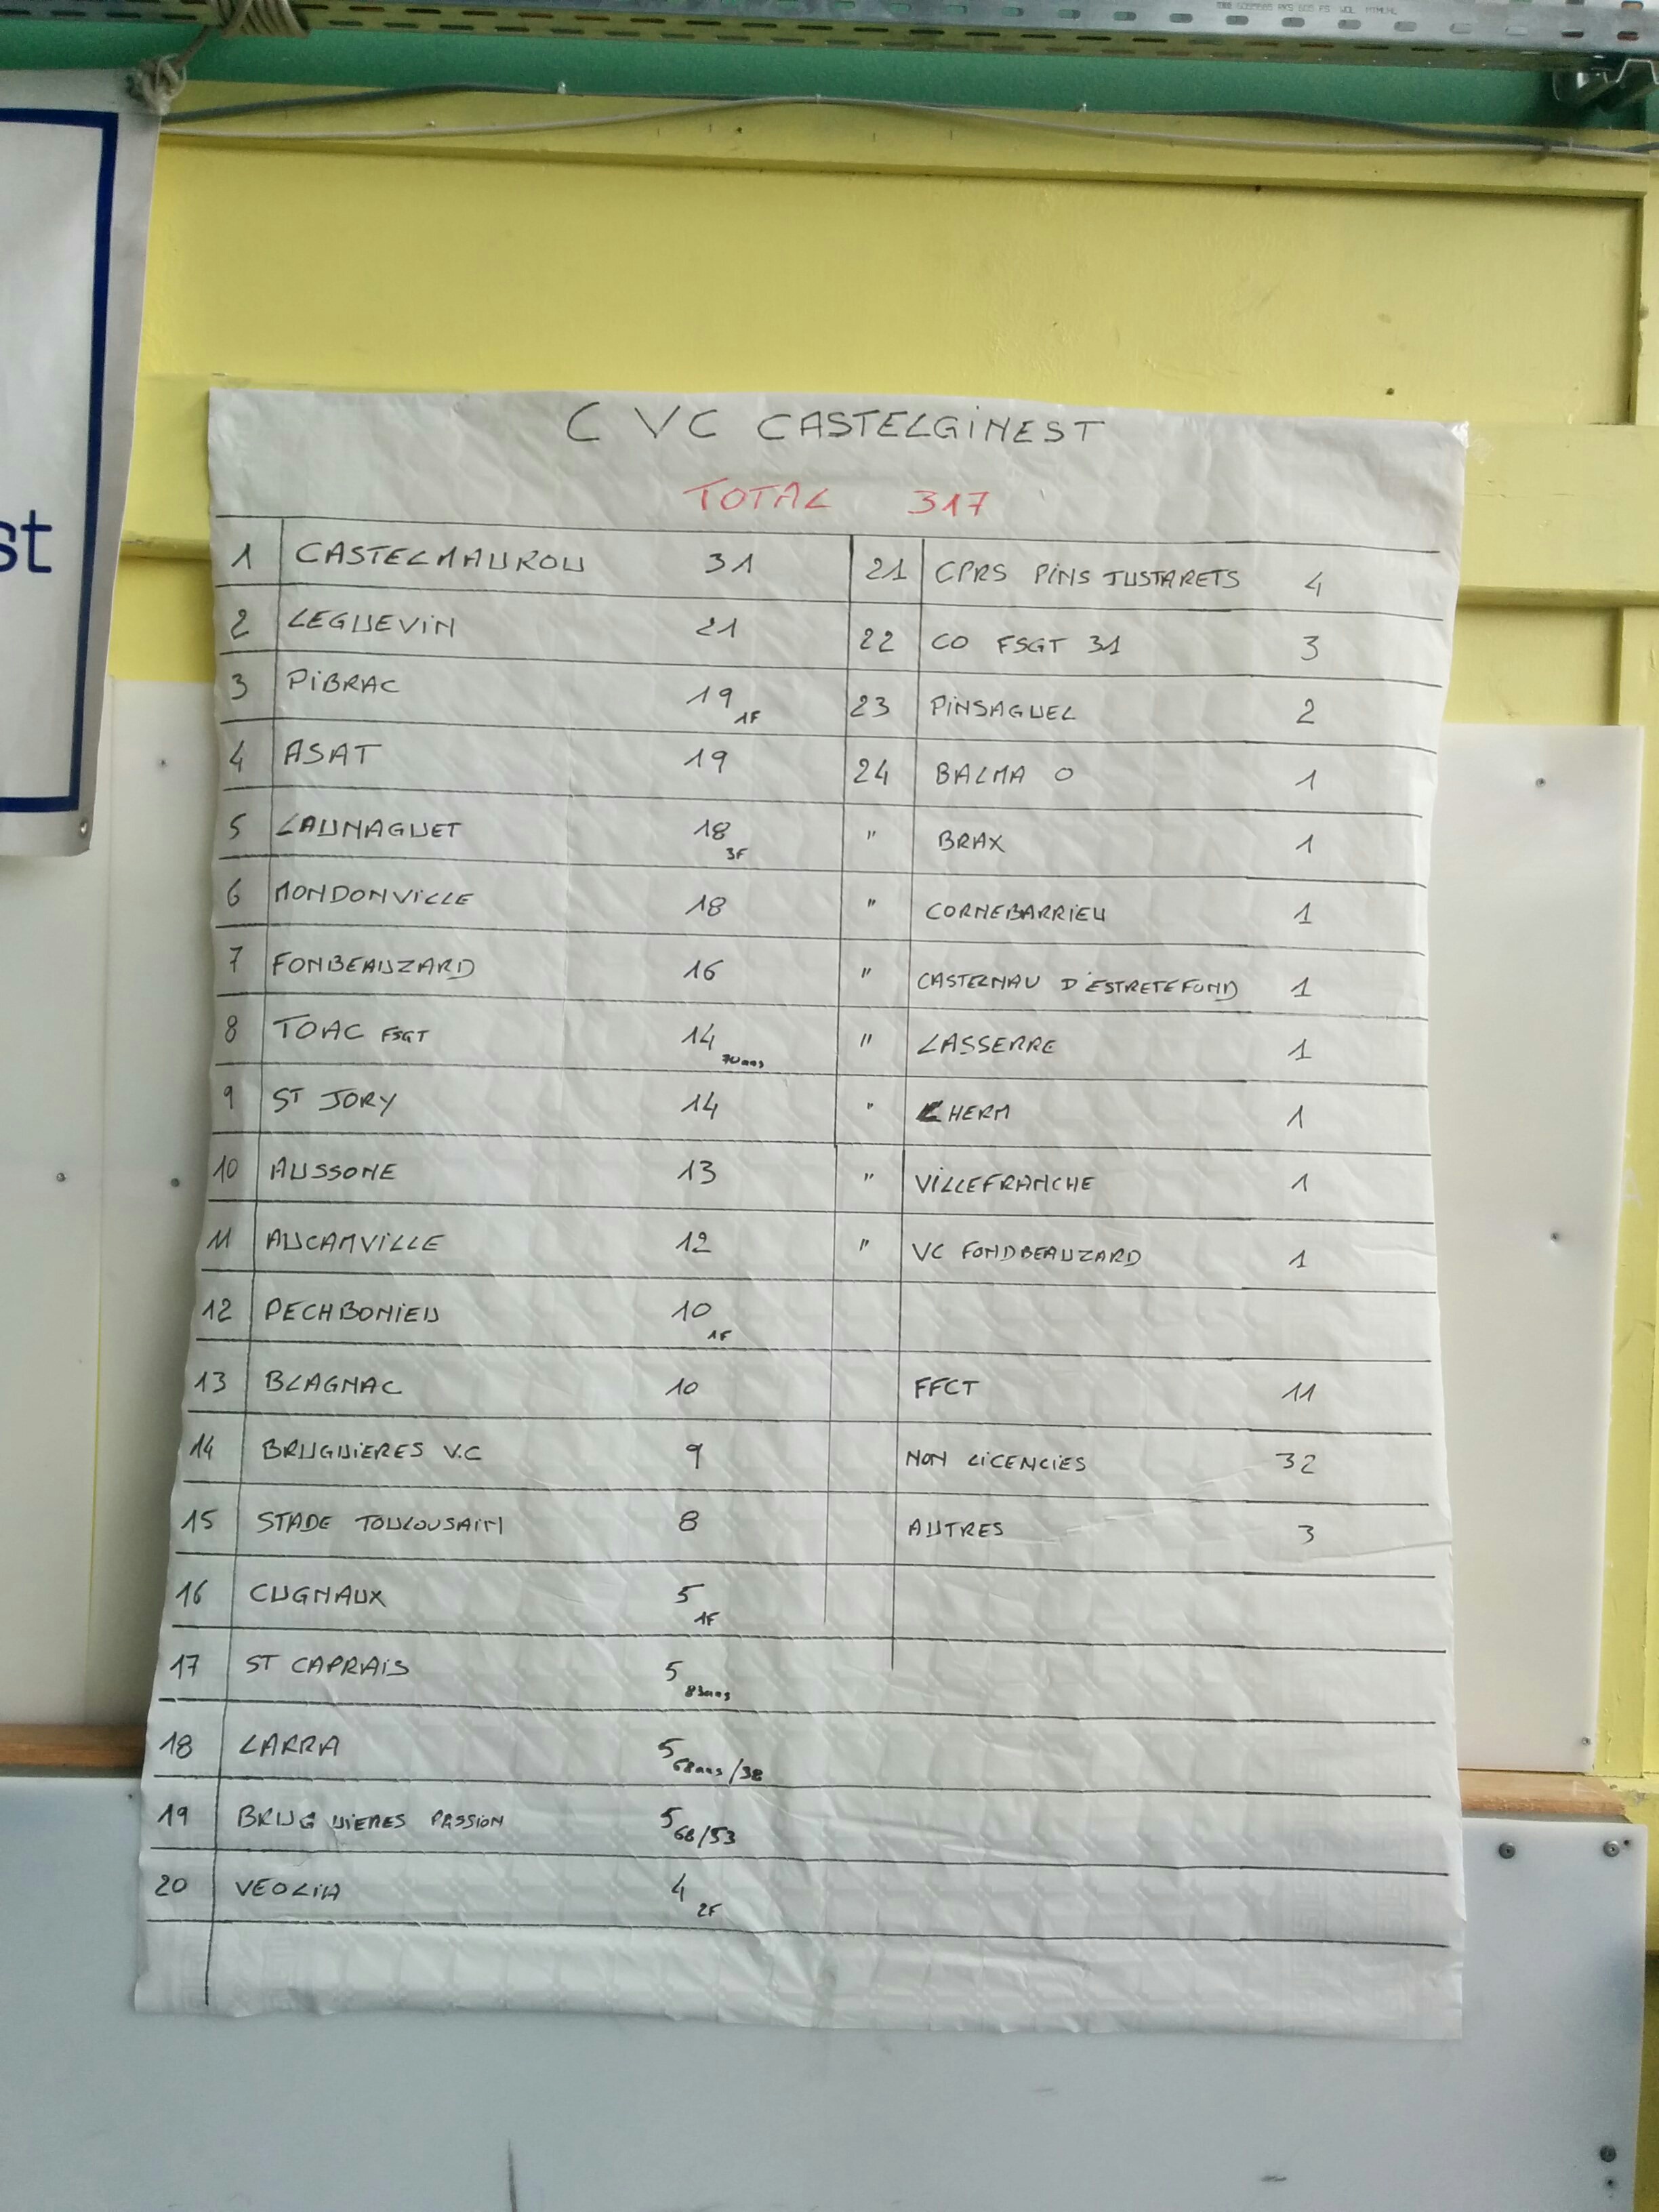 st
C V C CASTELGINEST
TOTAL 317
1 CASTELMAUROU 31
2 LEGUEVIN 21
3 PIBRAC 19 1F
4 ASAT 19
5 LAUNAGUET 18 3F
6 MONDONVILLE 18
7 FONBEAUZARD 16
8 TOAC FSGT 14 70ans
9 ST JORY 14
10 AUSSONE 13
11 AUCAMVILLE 12
12 PECHBONIEU 10 1F
13 BLAGNAC 10
14 BRUGUIERES V.C 9
15 STADE TOULOUSAIN 8
16 CUGNAUX 5 1F
17 ST CAPRAIS 5 83ans
18 LARRA 5 68ans/38
19 BRUGUIERES PASSION 5 68/53
20 VEOLIA 4 2F
21 CPRS PINS JUSTARETS 4
22 CO FSGT 31 3
23 PINSAGUEL 2
24 BALMA O 1
" BRAX 1
" CORNEBARRIEU 1
" CASTELNAU D'ESTRETEFOND 1
" LASSERRE 1
" LHERM 1
" VILLEFRANCHE 1
" VC FONDBEAUZARD 1
FFCT 11
NON LICENCIES 32
AUTRES 3